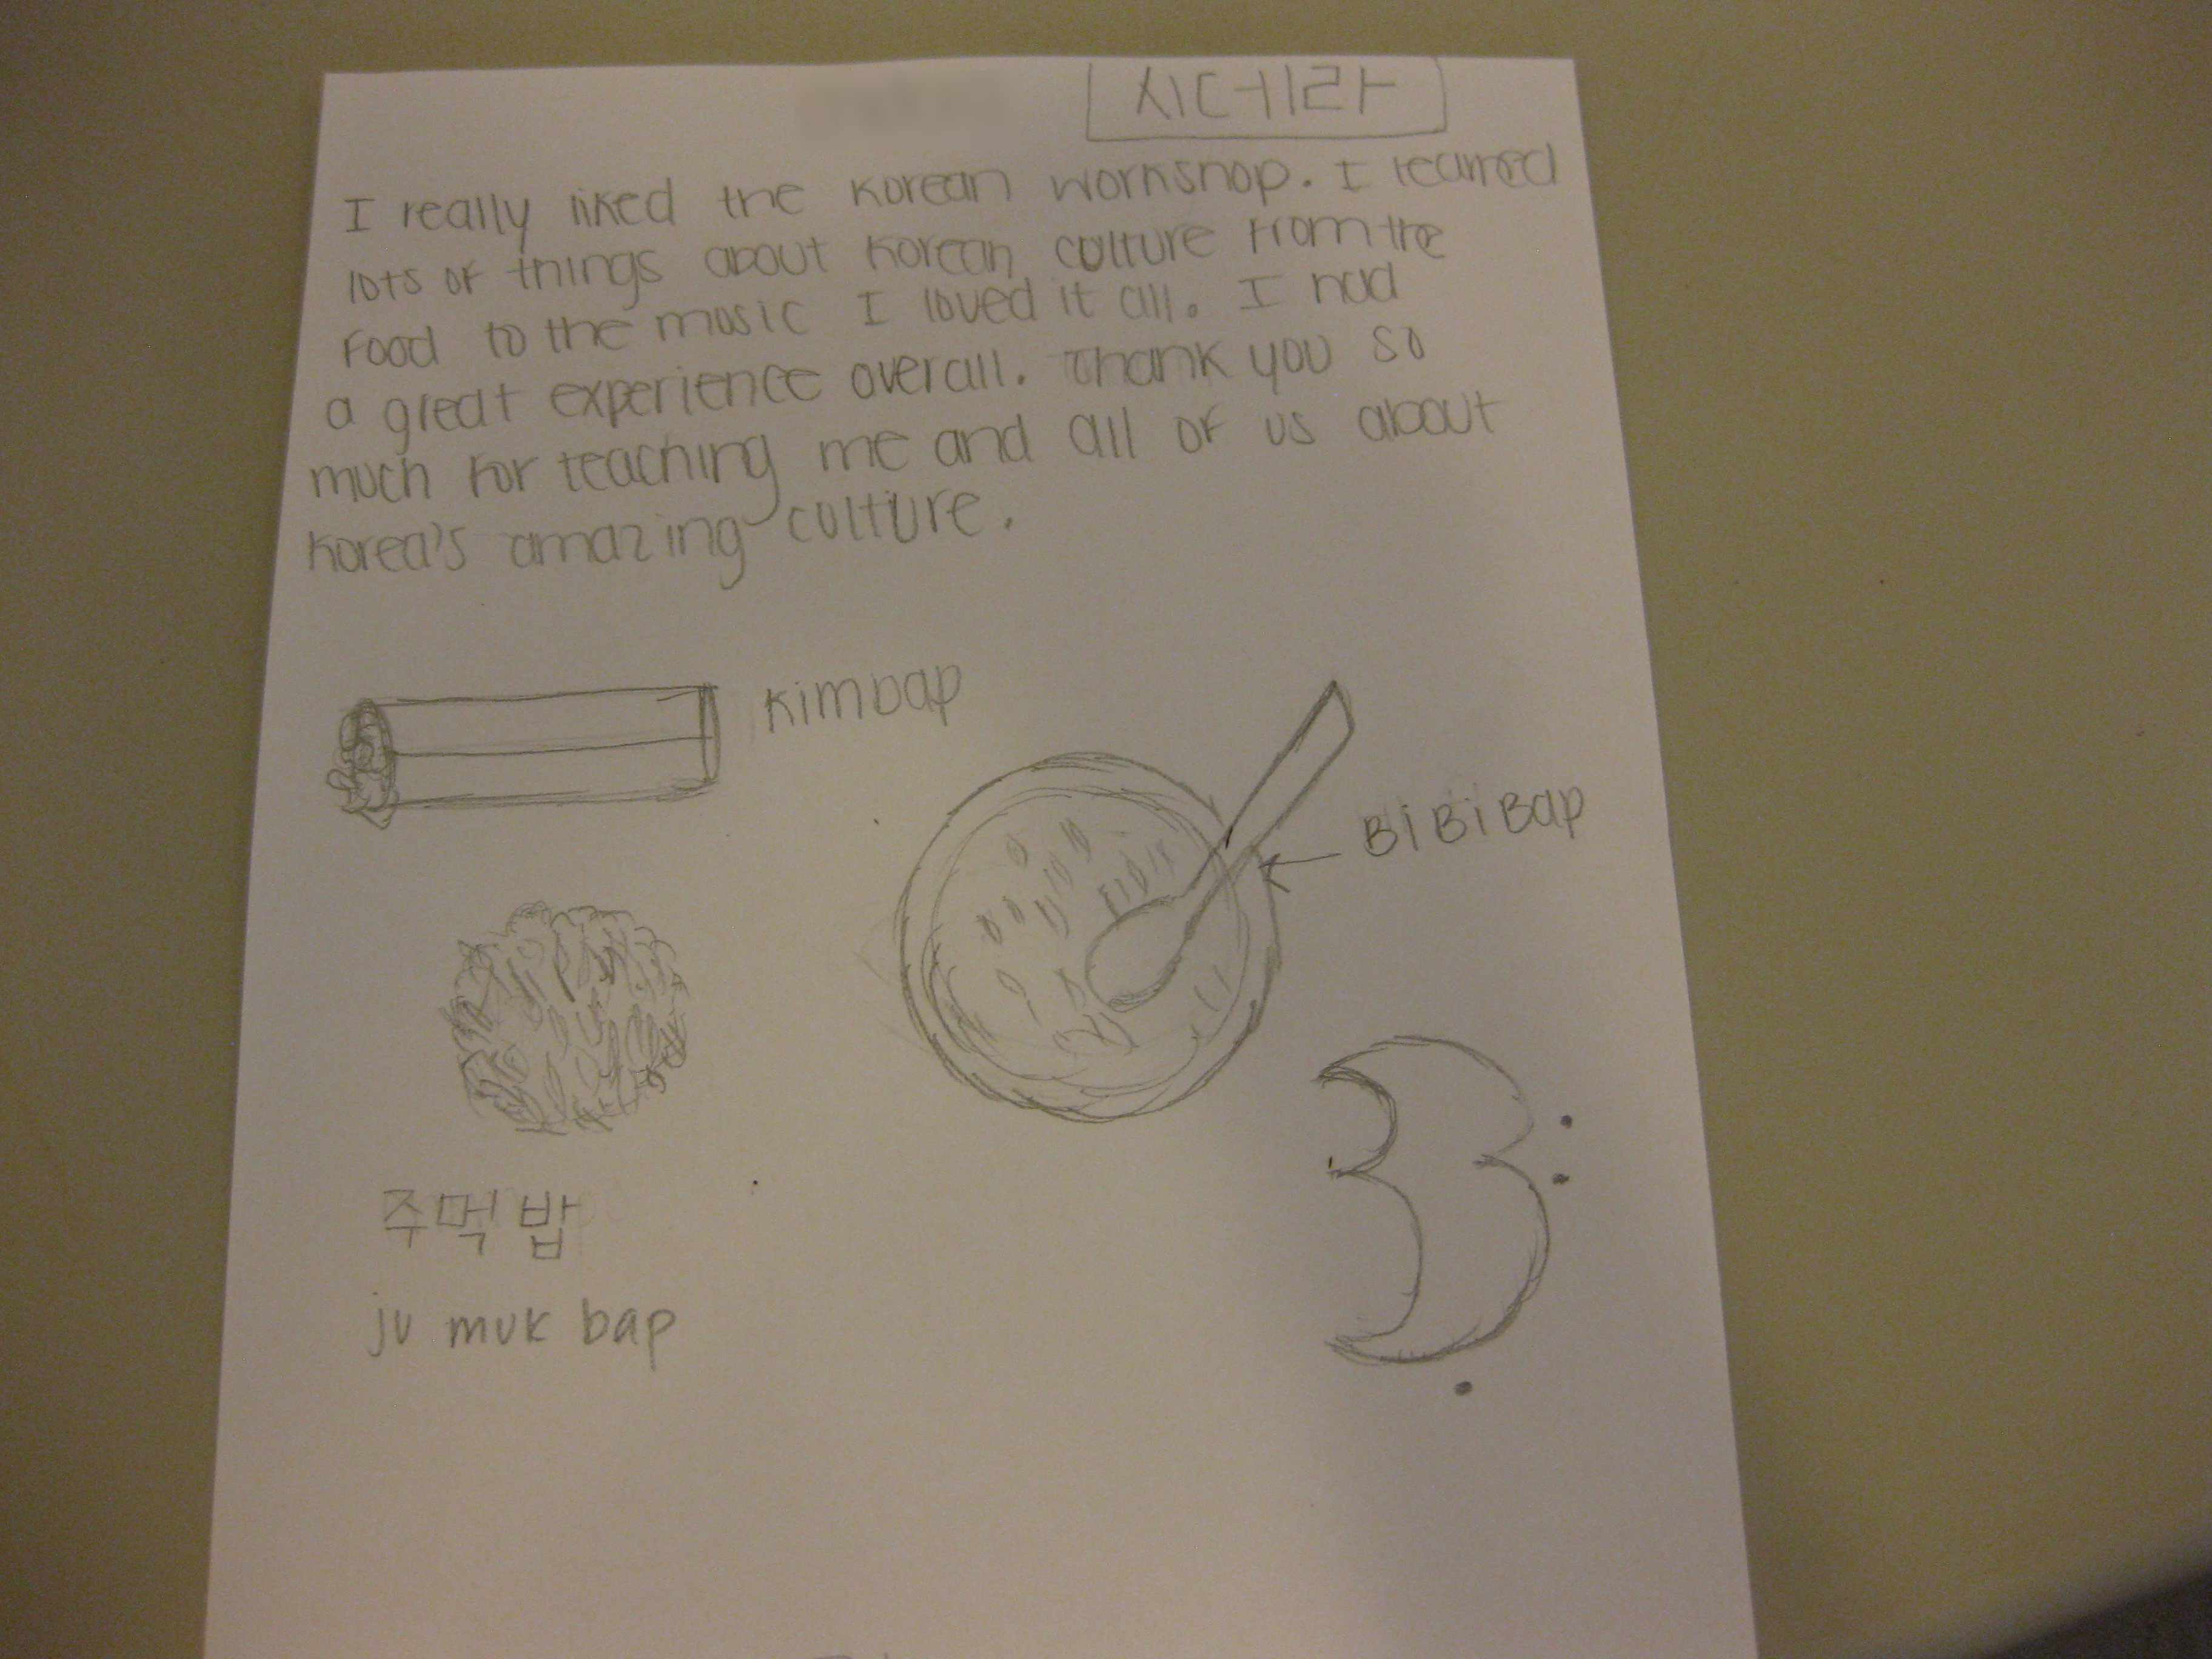 시데라
I really liked the Korean workshop. I learned
lots of things about Korean culture from the
food to the music I loved it all. I had
a great experience overall. Thank you so
much for teaching me and all of us about
Korea's amazing culture.
Kimbap
BiBiBap
주먹밥
ju muk bap